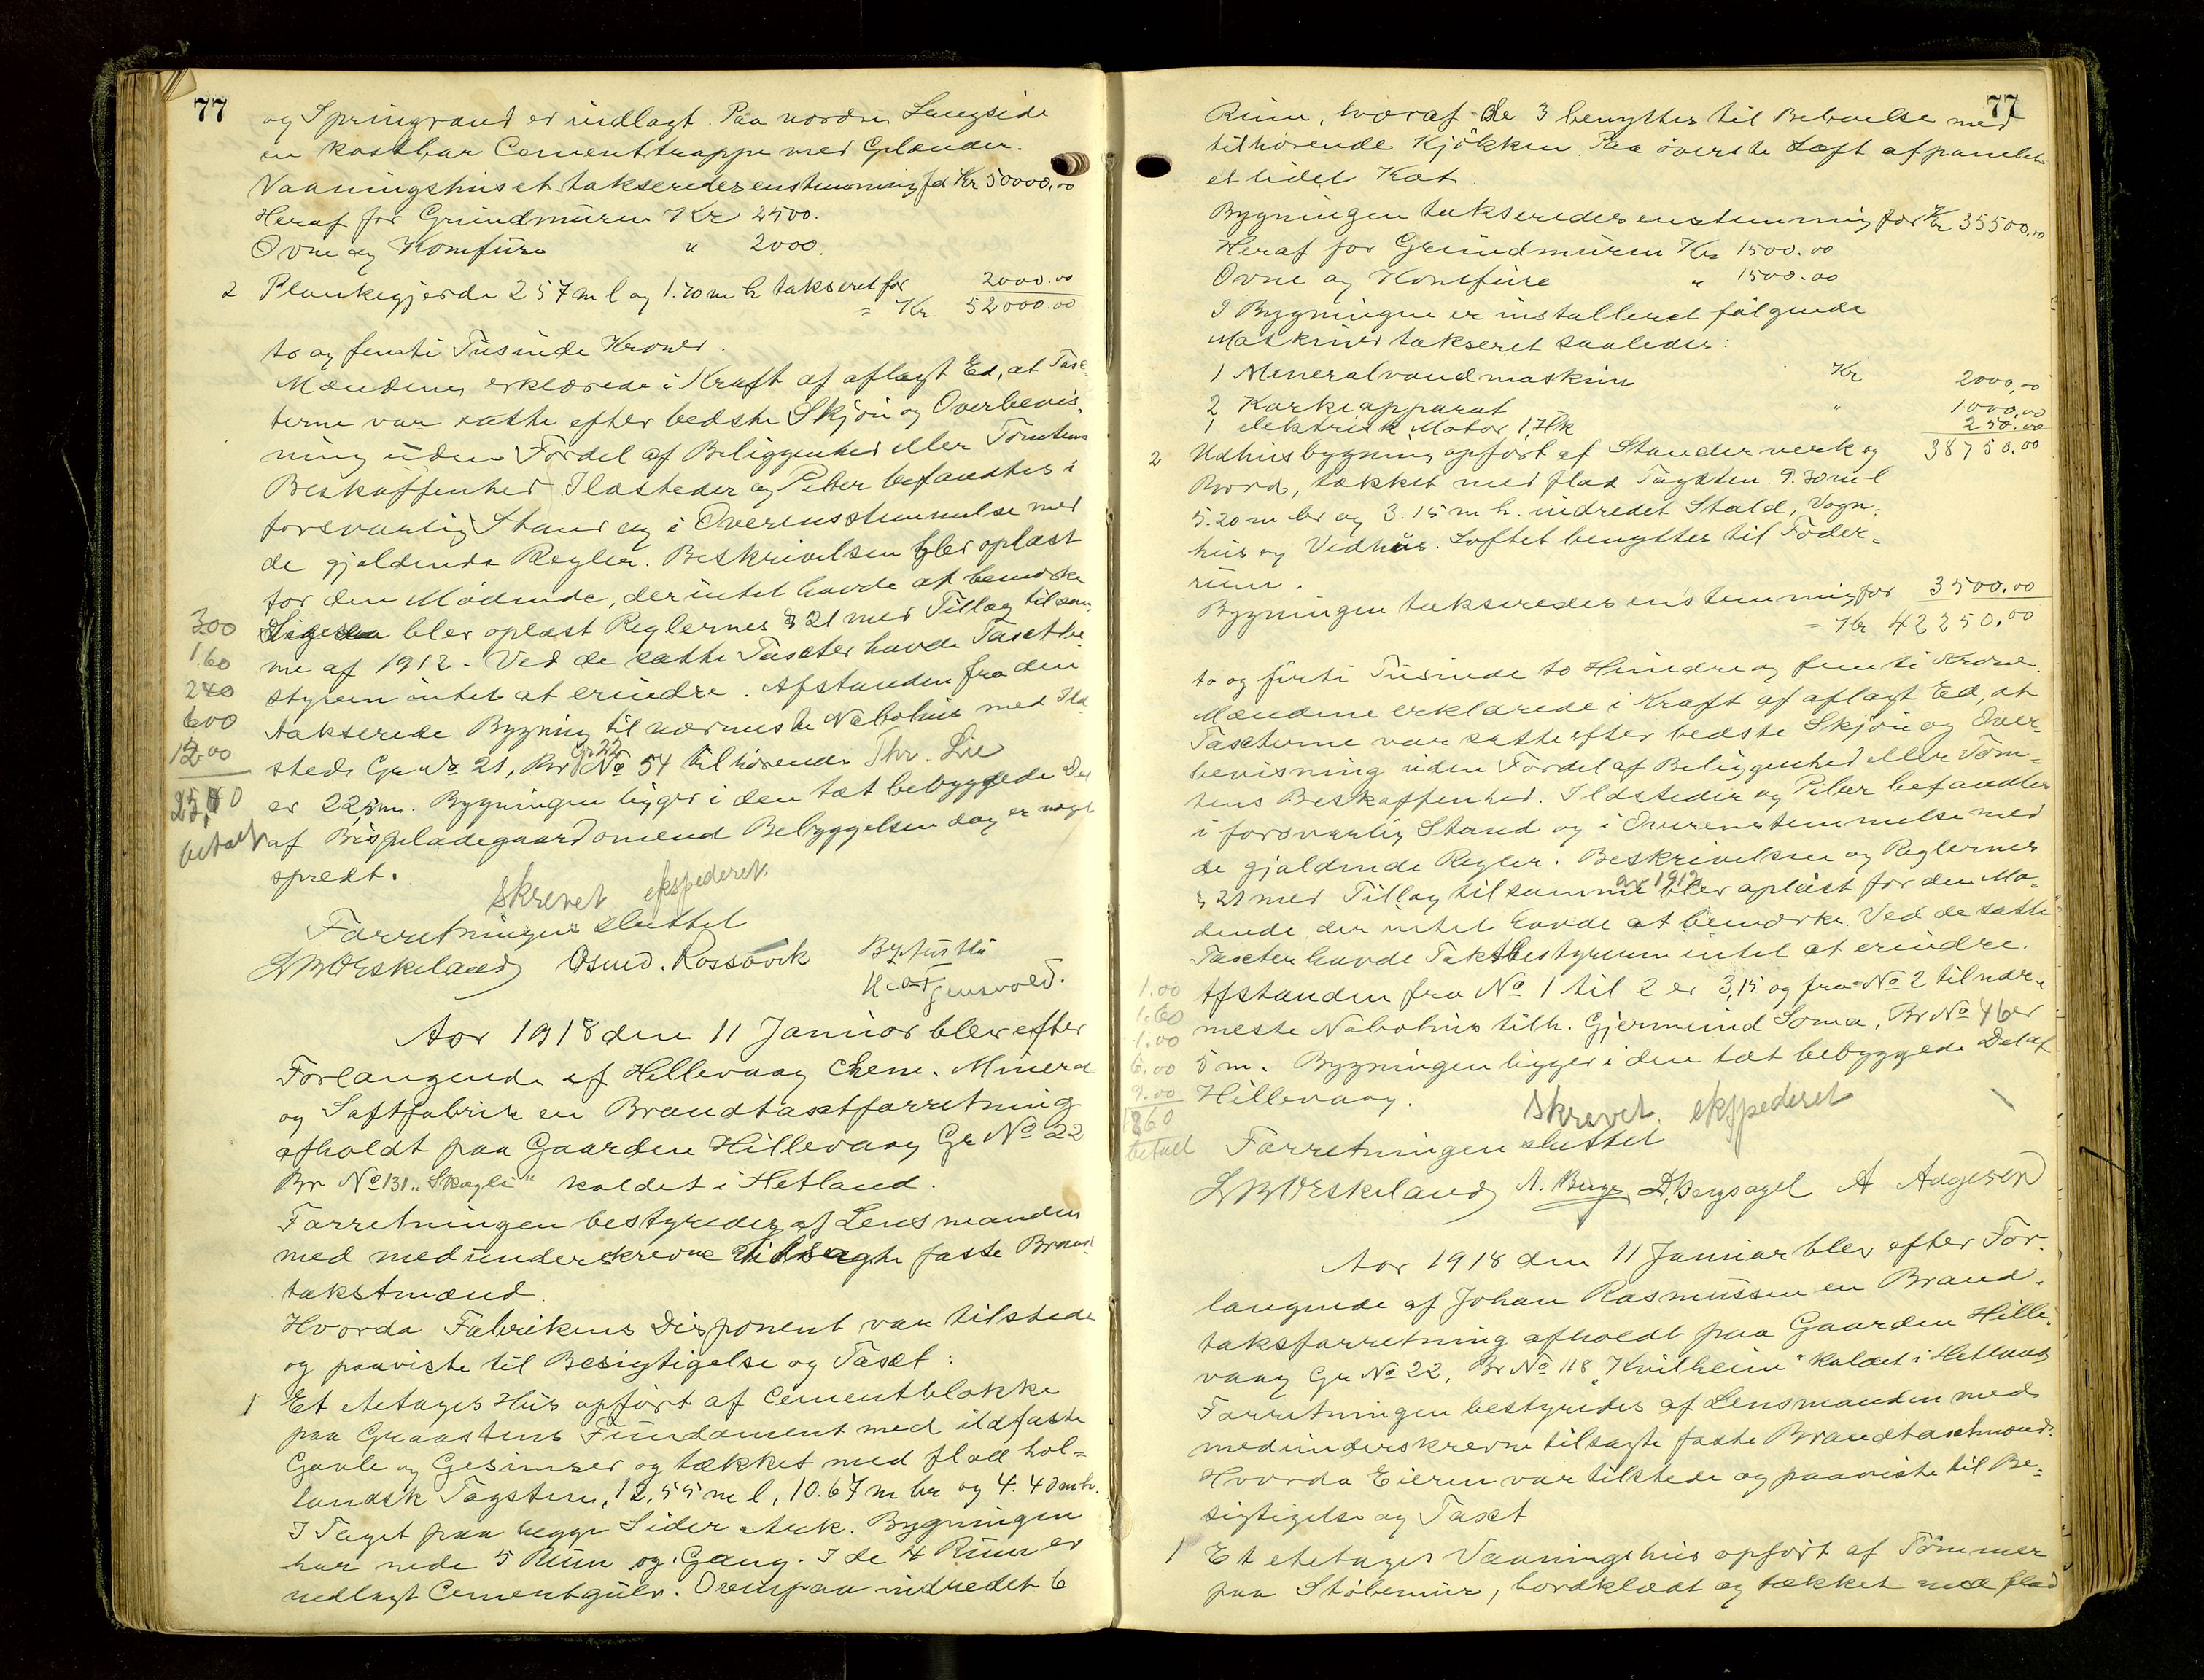 77
og Springvand er indlagt. Paa nordre Langside
en kostbar Cementtrappe med Gelænder.
Vaaningshuset takseredes enstemmig for Kr 50000,00
Heraf for Grundmuren Kr 2500.
Ovne og Komfure " 2000.
2 Plankegjerde 257 m l og 1.70 m h takseret for 2000.00
= Kr 52000.00
to og femti Tusinde Kroner.
Mændene erklærede i Kraft af aflagt Ed, at Tax-
terne var satte efter bedste Skjøn og Overbevis-
ning uden Fordel af Beliggenhed eller Tomtens
Beskaffenhed. Ildsteder og Piber befandtes i
forsvarlig Stand og i Overensstemmelse med
de gjældende Regler. Beskrivelsen blev oplæst
for den Mødende, der intet havde at bemærke
Ligesaa blev oplæst Reglernes § 21 med Tillæg til sam-
me af 1912. Ved de satte Taxter havde Taxtbe-
styreren intet at erindre. Afstanden fra den
takserede Bygning til nærmeste Nabohus med Ild-
sted Gr No 21, Br Gr 22 No 54 tilhørende Thv. Lie
er 22,5 m. Bygningen ligger i den tæt bebyggede Del
af Bispeladegaard omend Bebyggelsen dog er noget
spredt.
300
1.60
240
600
12.00
25,00
betalt
skrevet ekspederet.
Forretningen sluttet
LBWEskeland Osmd. Rossavik
Aar 1918 den 11 Januar blev efter
Forlangende af Hillevaag Chem. Mineral
og Saftfabrik en Brandtaxtforretning
afholdt paa Gaarden Hillevaag Gr No 22
Br No 131 "Skogli" kaldet i Hetland.
Forretningen bestyredes af Lensmanden
med medunderskrevne tilsagte faste Brand-
takstmænd.
Hvorda Fabrikens Disponent var tilstede
og paaviste til Besigtigelse og Taxt:
1 Et etetages Hus opført af Cementblokke
paa Graastens Fundament med ildfaste
Gavle og Gesimser og tækket med flad hol-
landsk Tagsten, 12,55 m l, 10.67 m br og 4.40 m h.
I Taget paa begge Sider Ark. Bygningen
har nede 5 Rum og Gang. I de 4 Rum er
nedlagt Cementgulv. Ovenpaa indredet 6
77
Rum, hvoraf de 3 benyttes til Beboelse med
tilhørende Kjøkken. Paa øverste Loft afpanelet
et lidet Kot.
Bygningen takseredes enstemmig for Kr 35500,00
Heraf for Grundmuren Kr 1500.00
Ovne og Komfure " 1500.00
I Bygningen er installeret følgende
Maskiner takseret saaledes:
1 Mineralvandmaskin Kr 2000,00
2 Korkeapparat " 1000,00
1 elektrisk Motor 1, Hk 250.00
38750.00
2 Udhusbygning opført af Stenderverk og
Bord, tækket med flad Tagsten. 9.30 m l
5.20 m br og 3.15 m h. indredet Stald, Vogn-
hus og Vedhus. Loftet benyttes til Foder-
rum.
Bygningen takseredes enstemmig for 3500.00
= Kr 42250.00
to og firti Tusinde to Hundre og femti Kroner.
Mændene erklærede i Kraft af aflagt Ed, at
Taxterne var satte efter bedste Skjøn og Over-
bevisning uden Fordel af Beliggenhed eller Tom-
tens Beskaffenhed. Ildsteder og Piber befandtes
i forsvarlig Stand og i Overenstemmelse med
de gjældende Regler. Beskrivelsen og Reglernes
§ 21 med Tillæg til samme av 1912 blev oplæst for den Mø-
dende der intet havde at bemærke. Ved de satte
Taxter havde Takstbestyreren intet at erindre.
Afstanden fra No 1 til 2 er 3,15 og fra No 2 til nær-
meste Nabohus tilh. Gjermund Soma, Br No 46 er
5 m. Bygningen ligger i den tæt bebyggede Del af
Hillevaag.
1.00
1.60
1.00
6.00
9.00
1860
betalt
skrevet. ekspederet
Forretningen sluttet
LBWEskeland A. Berge D. Bergsagel A Aageson
Aar 1918 den 11 Januar blev efter For-
langende af Johan Rasmussen en Brand-
taksforretning afholdt paa Gaarden Hille-
vaag Gr No 22, Br No 118 "Kvilheim" kaldet i Hetland
Forretningen bestyredes af Lensmanden med
medunderskrevne tilsagte faste Brandtaxtmænd.
Hvorda Eieren var tilstede og paaviste til Be-
sigtigelse og Taxt
1 Et etetages Vaaningshus opført af Tømmer
paa Støbemur, bordklædt og tækket med flad